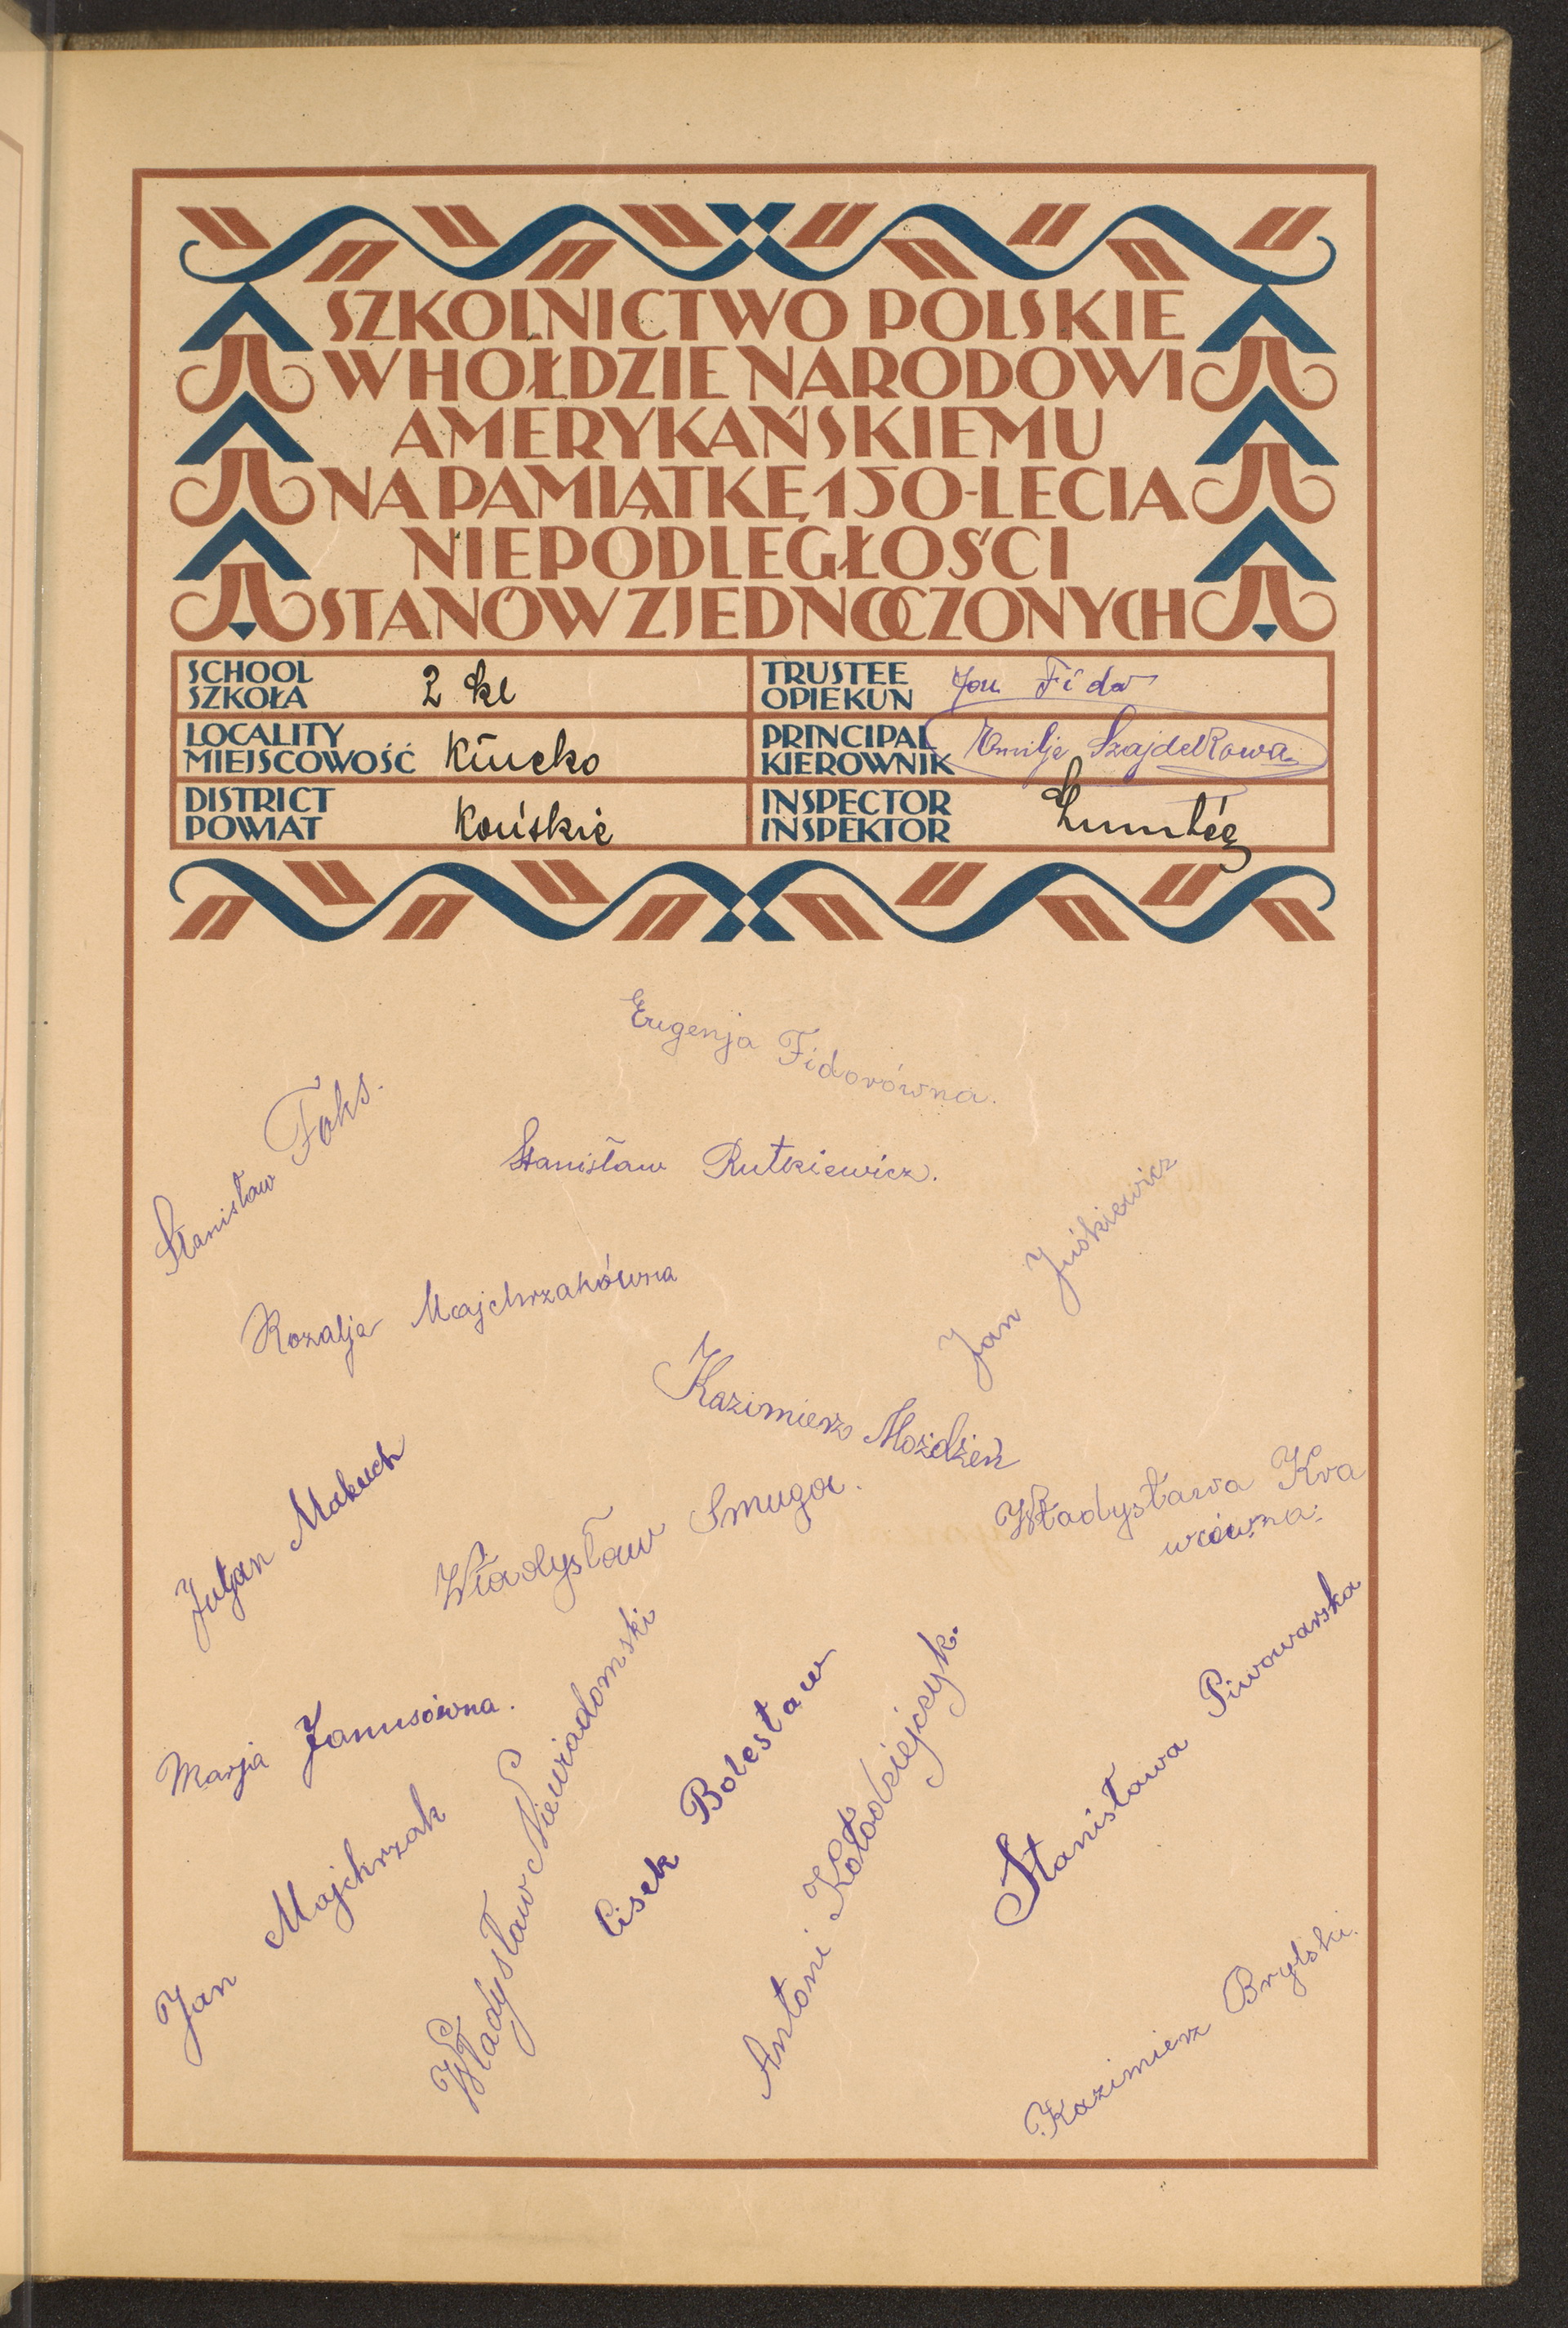 SZKOLNICTWO POLSKIE
W HOŁDZIE NARODOWI
AMERYKAŃSKIEMU
NA PAMIĄTKĘ 150-LECIA
NIEPODLEGŁOŚCI
STANÓW ZJEDNOCZONYCH
SCHOOL
SZKOŁA
2 kl
TRUSTEE
OPIEKUN
Jan Fida
LOCALITY
MIEJSCOWOŚĆ
Kłucko
PRINCIPAL
KIEROWNIK
Emilja Szajdelkowa
DISTRICT
POWIAT
Końskie
INSPECTOR
INSPEKTOR
Eugenja Fidorówna.
Stanisław Foks.
Stanisław Rutkiewicz.
Jan Juśkiewicz
Rozalja Majchrzakówna
Kazimierz Moździeń
Juljan Makuch
Władysław Smuga.
Władysława Kra
wcówna.
Marja Janusówna.
Władysław Niewiadomski
Cisek Bolesław
Antoni Kołodziejczyk.
Stanisława Piwowarska
Jan Majchrzak
Kazimierz Brylski.